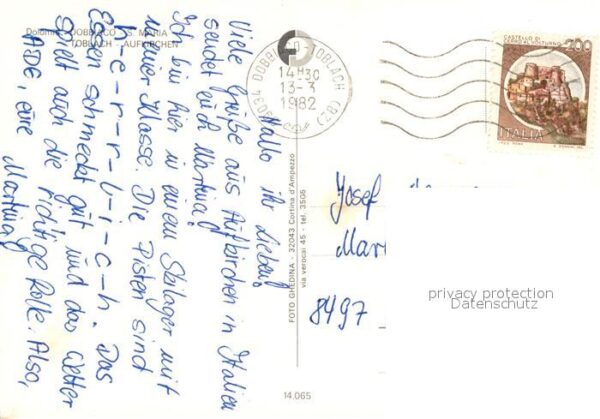 Dolomiti - DOBBIACO - S. MARIA
TOBLACH - AUFKIRCHEN
Hallo ihr Lieben!
Viele Grüße aus Aufkirchen in Italien
sendet euch Martina!
Ich bin hier in einem Skilager mit
meiner Klasse. Die Pisten sind
h-e-r-r-l-i-c-h. Das
Essen schmeckt gut und das Wetter
spielt auch die richtige Rolle. Also,
ADE, eure
Martina
FOTO GHEDINA - 32043 Cortina d'Ampezzo
via verocai 45 - tel. 3505
14.065
39034 DOBBIACO-TOBLACH (BZ)
14H30
13-3
1982
CASTELLO DI
CERRO AL VOLTURNO
200
ITALIA
Josef
Mar
8497
privacy protection
Datenschutz